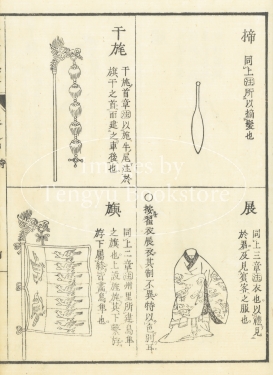 揥
同上註所以摘髮也
干旄
干旄首章註以旄牛尾注於
旗干之首而建之車後也
展
同上三章註衣也以禮見
於君及見賓客之服也
○按褖衣展衣其制不異特以色別耳
旟
同上二章註州里所建鳥隼
之旗也上設旌旄其下繫斿
斿下屬縿皆畫鳥隼也
Images from
Fengyi Bookstore